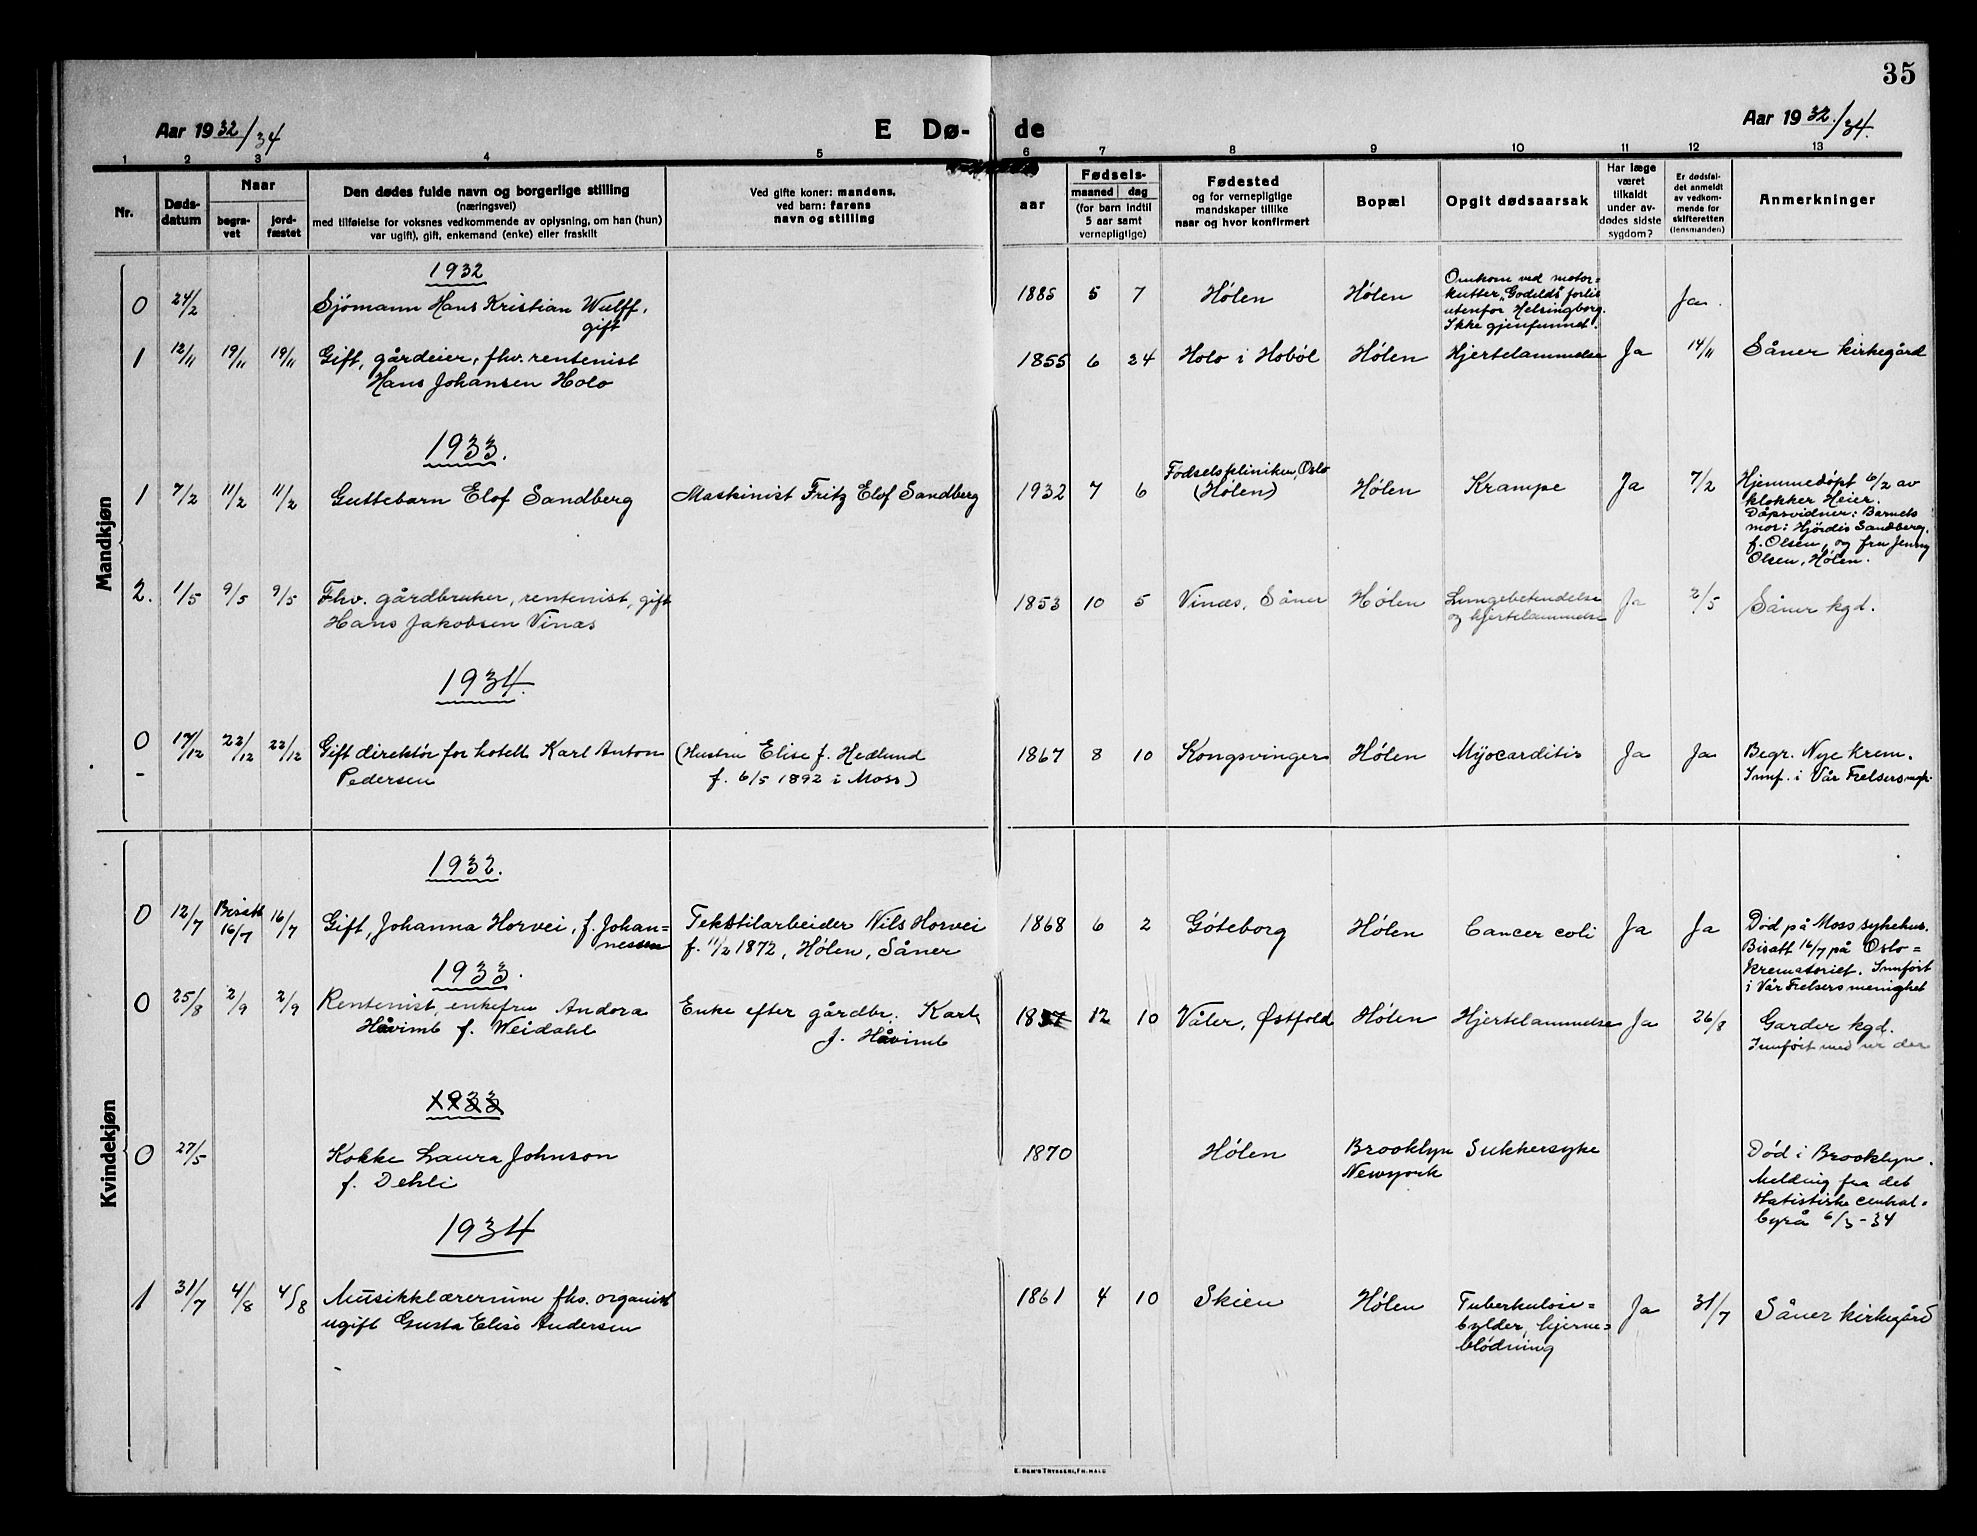 35
Aar 1932/34
E Dø-
de
Aar 1932/34.
1 2 3 4 5 6 7 8 9 10 11 12 13
Nr.
Døds-
datum
Naar
begra-
vet
jord-
fæstet
Den dødes fulde navn og borgerlige stilling
(næringsvei)
med tilføielse for voksnes vedkommende av oplysning, om han (hun)
var ugift), gift, enkemand (enke) eller fraskilt
Ved gifte koner: mandens,
ved barn: farens
navn og stilling
aar
Fødsels-
maaned dag
(for barn indtil
5 aar samt
vernepligtige)
Fødested
og for vernepligtige
mandskaper tillike
naar og hvor konfirmert
Bopæl
Opgit dødsaarsak
Har læge
været
tilkaldt
under av-
dødes sidste
sygdom?
Er dødsfal-
det anmeldt
av vedkom-
mende for
skifteretten
(lensmanden)
Anmerkninger
Mandkjøn
1932
0 24/2 Sjömann Hans Kristian Wulff,
gift
1885 5 7 Hölen Hölen
Omkom ved motor=
kutter "Godelds" forlis
utenfor Helsingborg.
Ikke gjenfunnet.
Ja.
1 12/11 19/11 19/11 Gift, gårdeier, fhv. rentenist
Hans Johansen Holo
1855 6 24 Holo i Hobøl Hølen Hjertelammelse Ja 14/11 Såner kirkegård
1933.
1 7/2 11/2 11/2 Guttebarn Elof Sandberg Maskinist Fritz Elof Sandberg
1932 7 6 Fødselskliniken, Oslo
(Hølen)
Hølen Krampe Ja 7/2
Hjemmedøpt 6/2 av
klokker Heier.
Dåpsvidner: Barnets
mor: Hjördis Sandberg,
f. Olsen, og fru Jenny
Olsen, Hölen.
2. 1/5 9/5 9/5 Fhv. gårdbruker, rentenist, gift
Hans Jakobsen Vinæs
1853 10 5 Vinæs, Såner Hølen Lungebetendelse
og hjertelammelse
Ja 2/5 Såner kgd.
1934.
0 17/12 22/12 22/12 Gift direktör for hotell Karl Anton
Pedersen
(Hustru Elise f. Hedlund
f. 6/5 1892 i Moss)
1867 8 10 Kongsvinger Hølen Myocarditis Ja Ja
Begr. Nye krem.
Innf. i Vår Frelsers mgh.
Kvindekjøn
1932.
0 12/7 Bisatt
16/7 16/7 Gift, Johanna Horvei, f. Johan=
nessen
Tekstilarbeider Nils Horvei
f. 11/2 1872, Hølen, Såner
1868 6 2 Göteborg Hølen Cancer coli Ja Ja
Död på Moss sykehus.
Bisatt 16/7 på Oslo=
krematoriet. Innfört
i Vår Frelsers menighet
1933.
0 25/8 2/9 2/9 Rentenist, enkefru Andora
Håvimb f. Weidahl
Enke efter gårdbr. Karl
J. Håvimb
12 10 Våler, Østfold Hølen Hjertelammelse Ja 26/8
Garder kgd.
Innført med nr der
1933
0 27/5 Kokke Laura Johnson
f. Dehli
1870 Hölen Brooklyn
Newyork
Sukkersyke
Död i Brooklyn.
Melding fra det
statistiske central=
byrå 6/3-34
1934
1 31/7 4/8 4/8 Musikklærerinne fhv. organist
ugift Gusta Elise Andersen
1861 4 10 Skien Hølen
Tuberkuløse=
bylder, hjerne=
blödning
Ja 31/7 Såner kirkegård
E. SEM'S TRYKKERI, FR.HALD